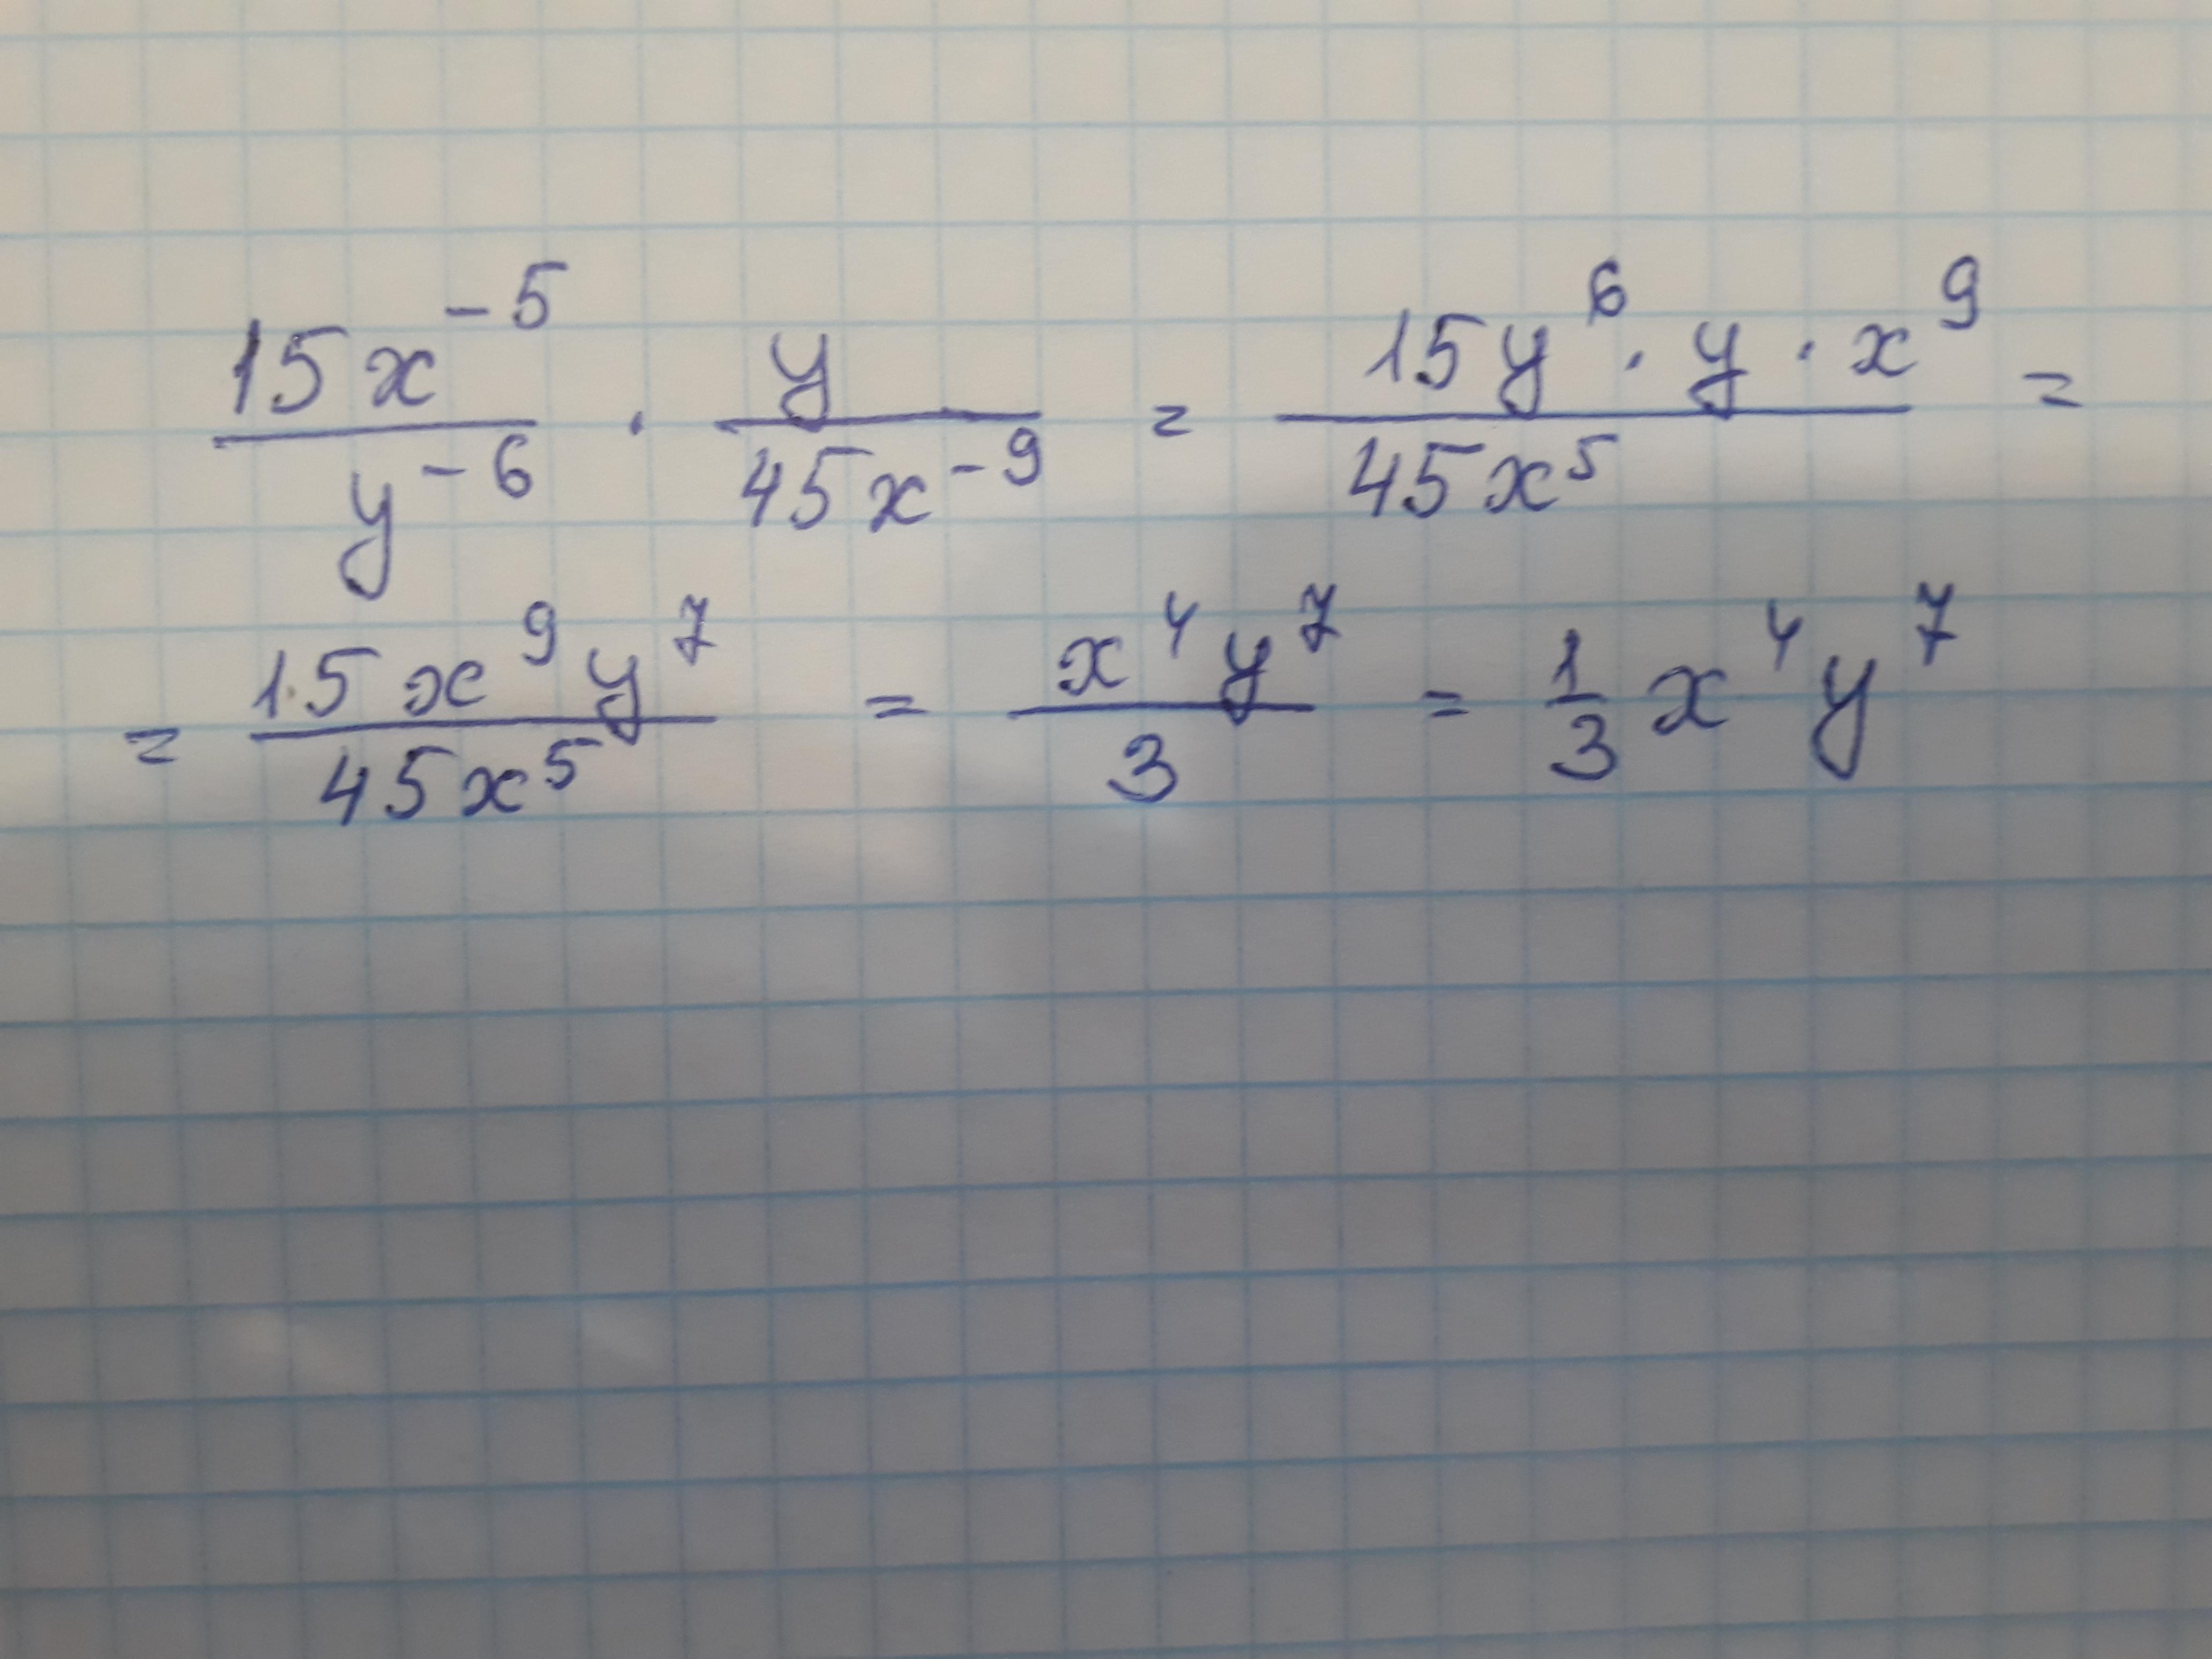 15x^-5 / y^-6 · y / 45x^-9 = 15y^6 · y · x^9 / 45x^5 =
= 15x^9y^7 / 45x^5 = x^4y^7 / 3 = 1/3 x^4y^7